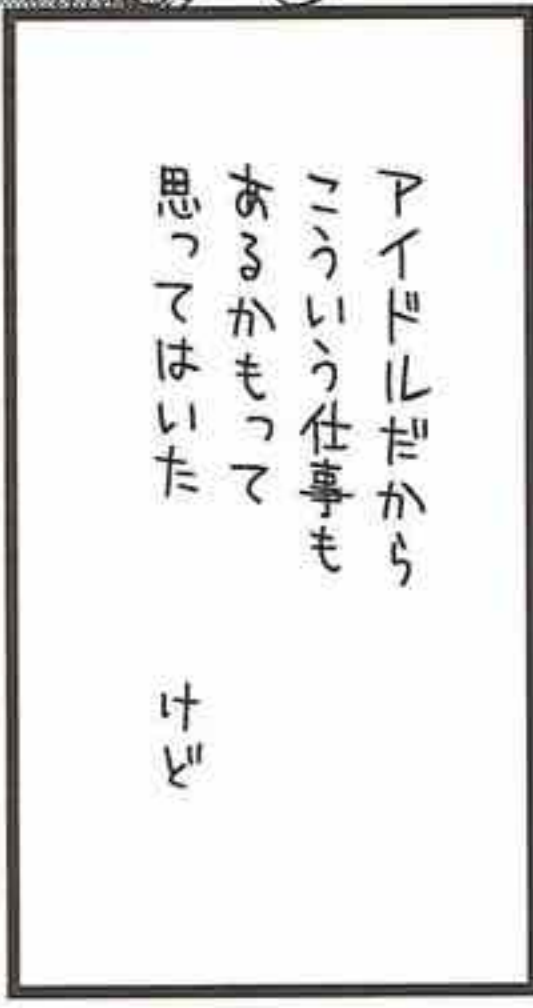 アイドルだから
こういう仕事も
あるかもって
思ってはいた　けど